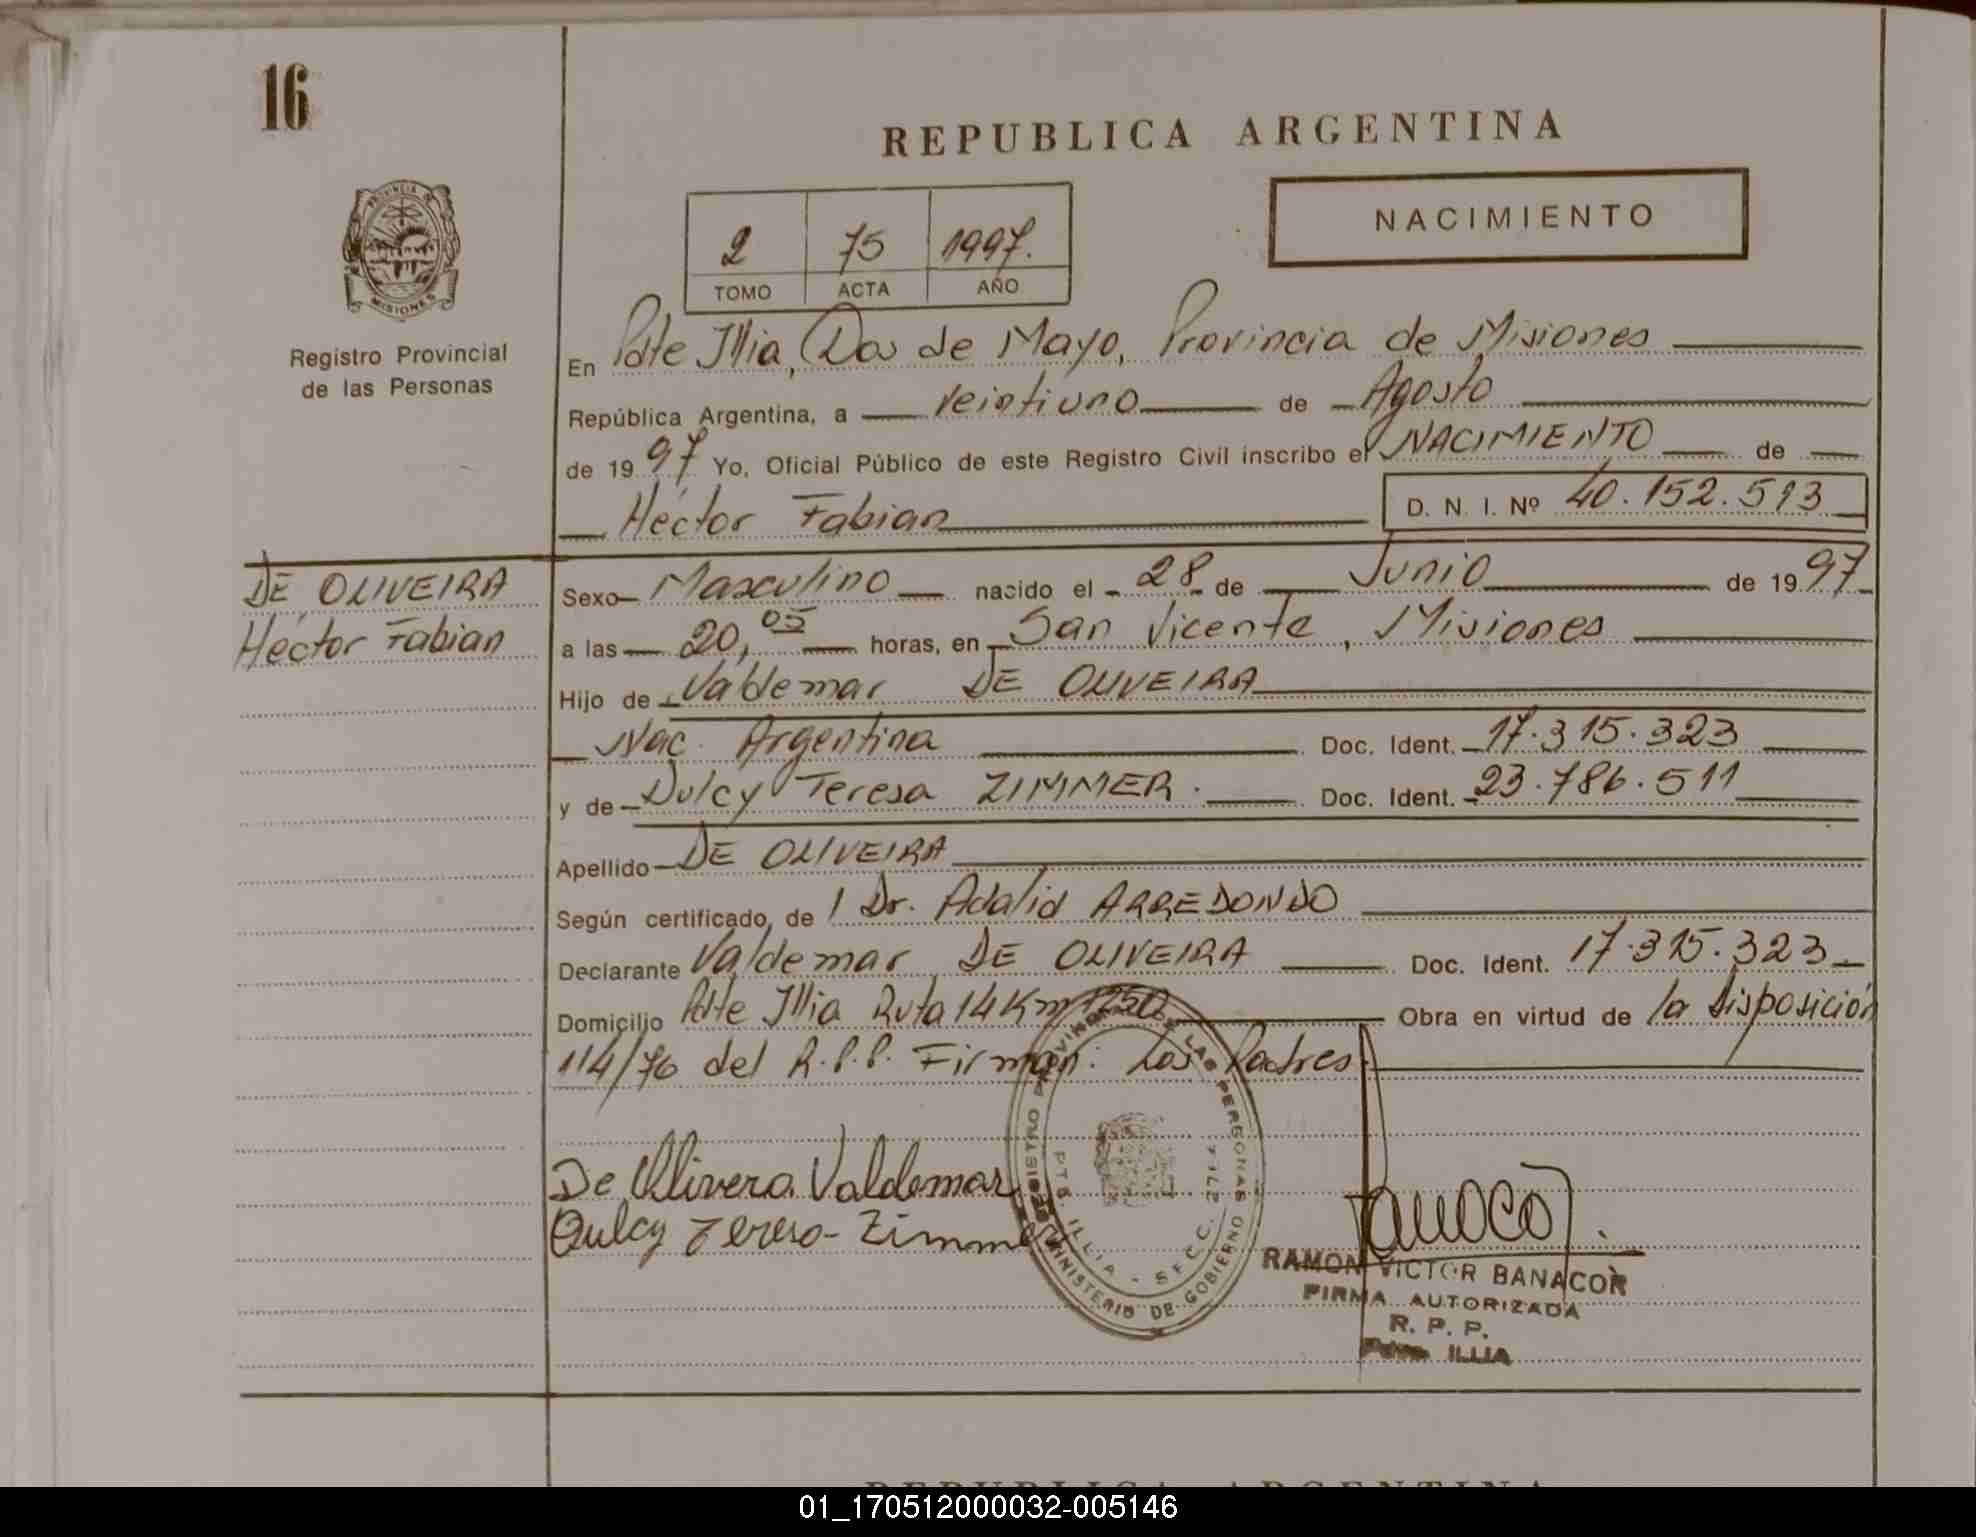 16
REPUBLICA ARGENTINA
PROVINCIA DE MISIONES
Registro Provincial
de las Personas
NACIMIENTO
2 75 1997.
TOMO ACTA AÑO
En Pdte Illia, Dos de Mayo, Provincia de Misiones
República Argentina, a veintiuno de Agosto
de 1997 Yo, Oficial Público de este Registro Civil inscribo el NACIMIENTO de
Héctor Fabian D. N. I. Nº 40.152.513
DE OLIVEIRA
Héctor Fabian
Sexo Masculino nacido el 28 de Junio de 1997
a las 20,05 horas, en San Vicente, Misiones
Hijo de Valdemar DE OLIVEIRA
Nac. Argentina Doc. Ident. 17.315.323
y de Dulcy Teresa ZIMMER. Doc. Ident. 23.786.511
Apellido DE OLIVEIRA
Según certificado de Dr. Adalid ARREDONDO
Declarante Valdemar DE OLIVEIRA Doc. Ident. 17.315.323
Domicilio Pdte Illia Ruta 14 Km 1250 Obra en virtud de la disposición
114/76 del R.P.P. Firman: Los Padres.
De Olivera Valdemar
Dulcy Tereso-Zimmer
REGISTRO PROVINCIAL DE LAS PERSONAS
MINISTERIO DE GOBIERNO
PTE. ILLIA - S.F.C.C. 2717
RAMON VICTOR BANACOR
FIRMA AUTORIZADA
R. P. P.
Pdte. ILLIA
REPUBLICA ARGENTINA
01_170512000032-005146